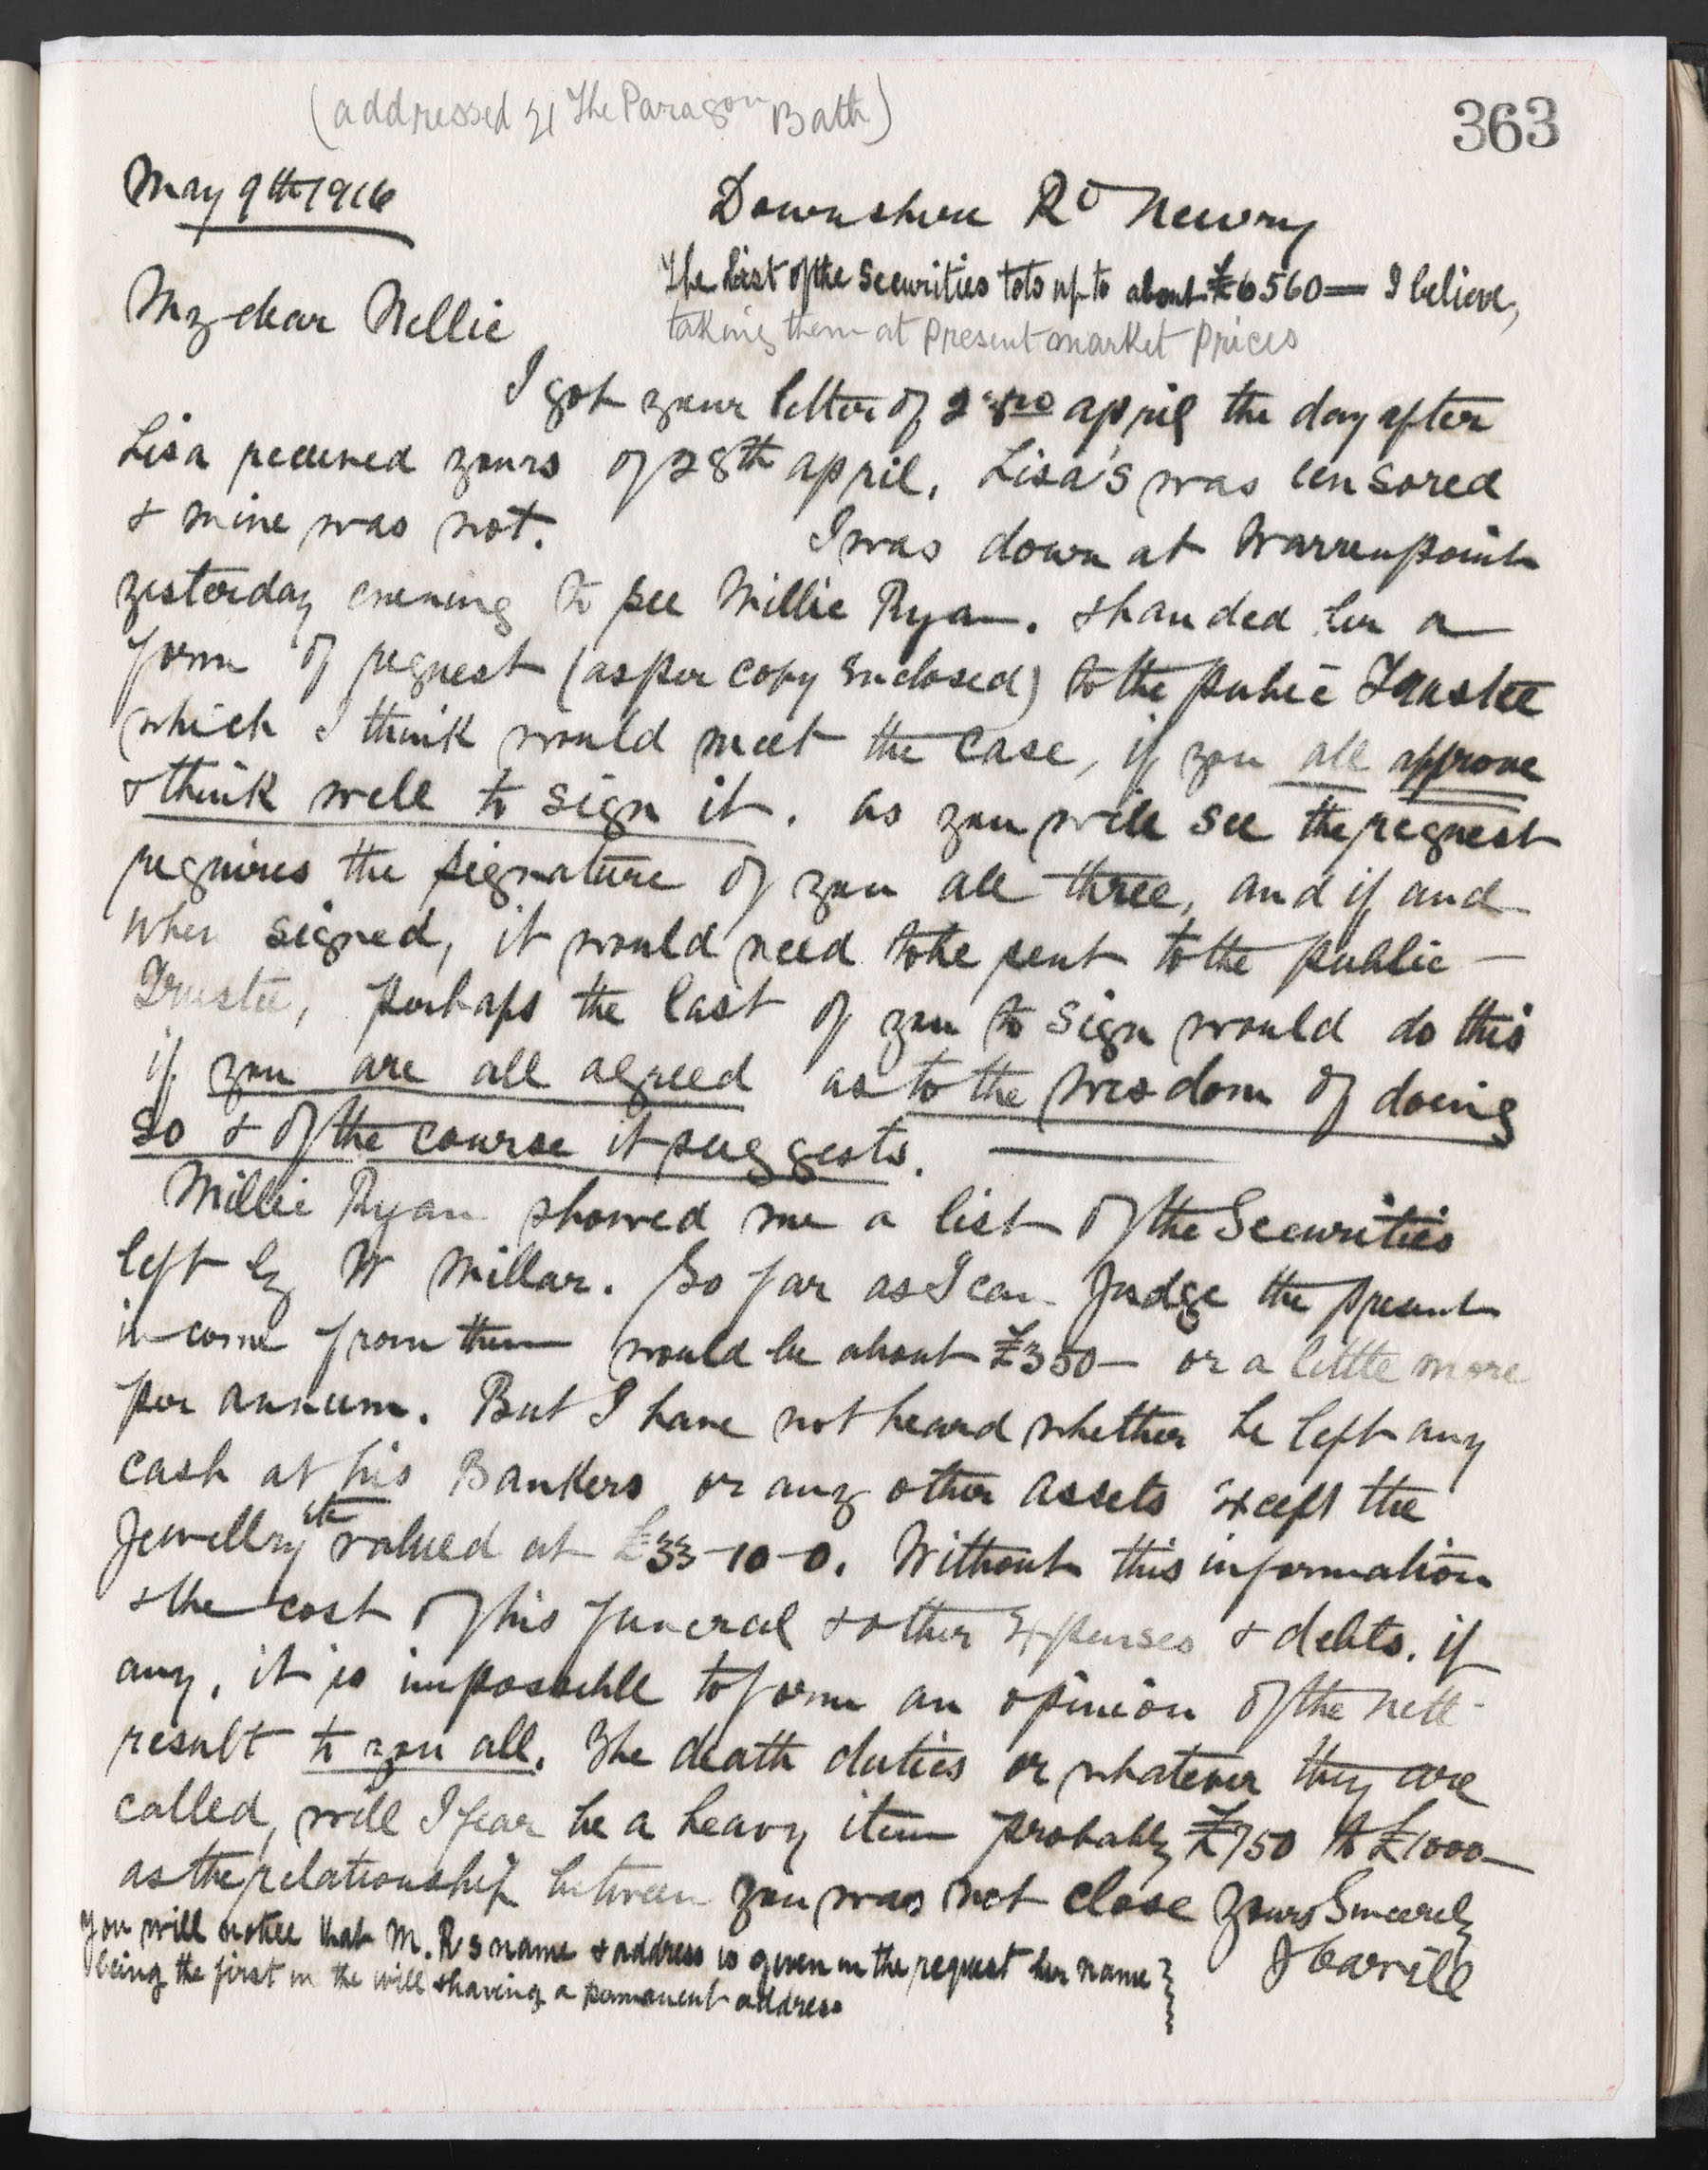 (addressed 21 The Paragon Bath)
363
May 9th 1916
Downshire Rd Newry
The list of the Securities tots up to about £6560 — I believe,
taking them at present market prices
My dear Nellie
I got your letter of 23rd april the day after
Lisa received yours of 28th april. Lisa's was censored
& mine was not. I was down at Warrenpoint
yesterday evening to see Millie Ryan. & handed her a
form of request (as per copy Enclosed) to the public Trustee
which I think would meet the case, if you all approve
& think well to sign it. as you will see the request
requires the signature of you all three, and if and
when signed, it would need to be sent to the public —
Trustee, perhaps the last of you to sign would do this
if you are all agreed as to the wisdom of doing
so & of the course it suggests. —
Millie Ryan showed me a list of the Securities
left by W Millar. So far as I can Judge the present
income from them would be about £350 — or a little more
per annum. But I have not heard whether he left any
cash at his Bankers or any other assets Except the
Jewellry etc valued at £33-10-0. Without this information
& the cost of his funeral & other Expenses & debts, if
any, it is impossible to form an opinion of the nett
result to you all. The death duties or whatever they are
called, will I fear be a heavy item probably £750 to £1000 —
as the relationship between you was not close Yours Sincerely
J Carvill
You will notice that M. R's name & address is given in the request her name
being the first in the will & having a permanent address